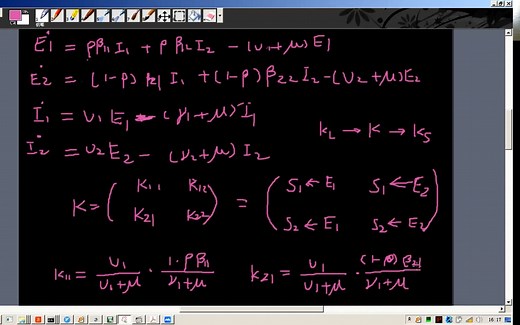 Ė1 = pβ11 I1 + p β12 I2 − (υ1 + μ) E1
Ė2 = (1-p) β21 I1 + (1-p) β22 I2 − (υ2 + μ) E2
İ1 = υ1 E1 − (γ1 + μ) I1
İ2 = υ2 E2 − (γ2 + μ) I2
KL → K → KS
K = ( K11 K12 K21 K22 ) = ( S1 ← E1 S1 ← E2 S2 ← E1 S2 ← E2 )
K11 = υ1/(υ1+μ) · 1·pβ11/(γ1+μ) K21 = υ1/(υ1+μ) · (1-p)β21/(γ1+μ)
16:17